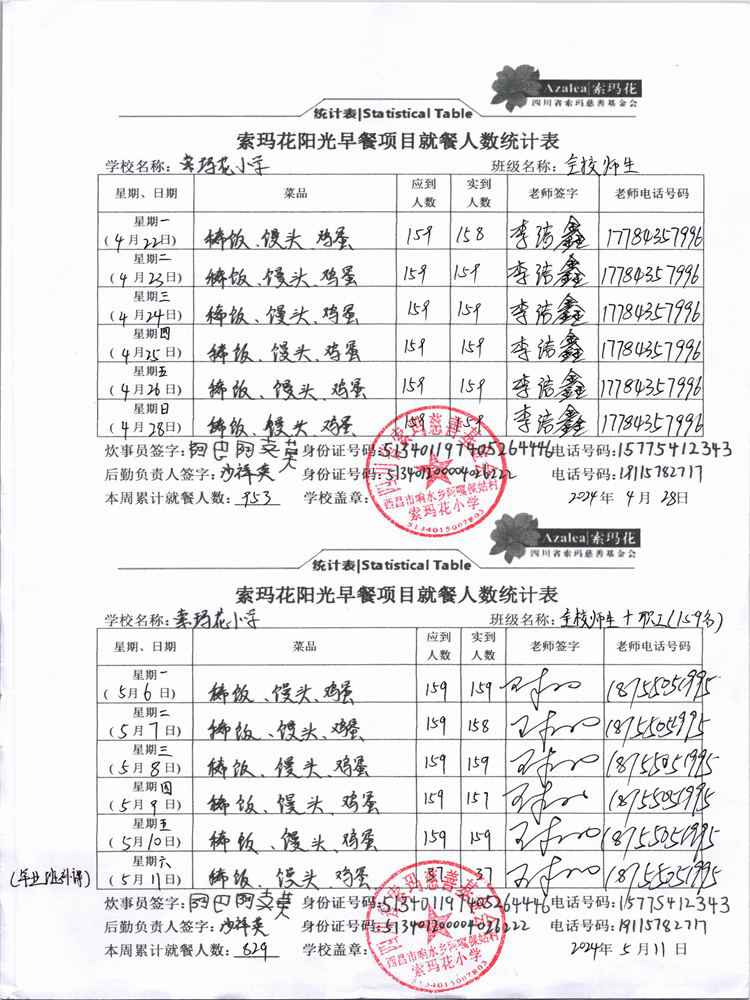 Azalea 索玛花
四川省索玛慈善基金会
统计表|Statistical Table
索玛花阳光早餐项目就餐人数统计表
学校名称：索玛花小学 班级名称：全校师生
星期、日期 菜品 应到人数 实到人数 老师签字 老师电话号码
星期一
(4月22日) 稀饭、馒头、鸡蛋 159 158 李洁鑫 17784357996
星期二
(4月23日) 稀饭、馒头、鸡蛋 159 159 李洁鑫 17784357996
星期三
(4月24日) 稀饭、馒头、鸡蛋 159 159 李洁鑫 17784357996
星期四
(4月25日) 稀饭、馒头、鸡蛋 159 159 李洁鑫 17784357996
星期五
(4月26日) 稀饭、馒头、鸡蛋 159 159 李洁鑫 17784357996
星期日
(4月28日) 稀饭、馒头、鸡蛋 159 159 李洁鑫 17784357996
炊事员签字：阿巴阿支英 身份证号码：513401197405264446 电话号码：15775412343
后勤负责人签字：沙祥英 身份证号码：513401200004026222 电话号码：18115782717
本周累计就餐人数：953 学校盖章： 2024年4月28日
西昌市响水乡阿嘎候姑村
索玛花小学
5134015007803
Azalea 索玛花
四川省索玛慈善基金会
统计表|Statistical Table
索玛花阳光早餐项目就餐人数统计表
学校名称：索玛花小学 班级名称：全校师生+职工(159名)
星期、日期 菜品 应到人数 实到人数 老师签字 老师电话号码
星期一
(5月6日) 稀饭、馒头、鸡蛋 159 159 18755051995
星期二
(5月7日) 稀饭、馒头、鸡蛋 159 158 18755051995
星期三
(5月8日) 稀饭、馒头、鸡蛋 159 159 18755051995
星期四
(5月9日) 稀饭、馒头、鸡蛋 159 157 18755051995
星期五
(5月10日) 稀饭、馒头、鸡蛋 159 159 18755051995
星期六
(毕业班补课) (5月11日) 稀饭、馒头、鸡蛋 37 37 18755051995
炊事员签字：阿巴阿支英 身份证号码：513401197405264446 电话号码：15775412343
后勤负责人签字：沙祥英 身份证号码：513401200004026222 电话号码：19115782717
本周累计就餐人数：829 学校盖章： 2024年5月11日
西昌市响水乡阿嘎候姑村
索玛花小学
5134015007803